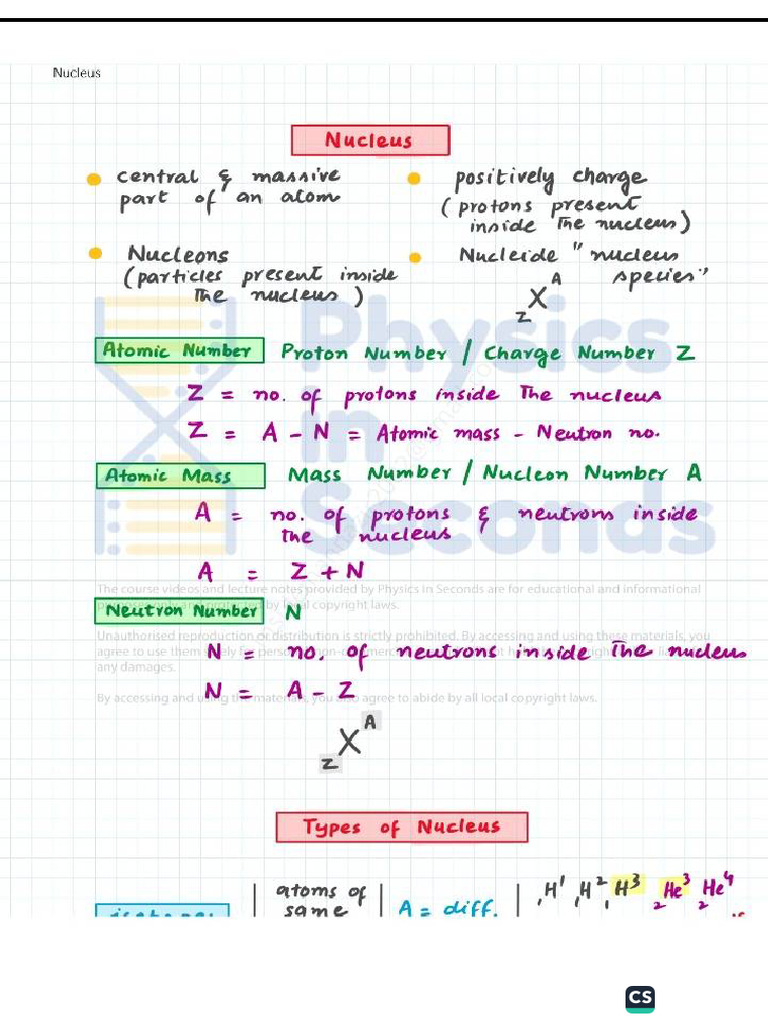 Nucleus
Nucleus
central & massive
part of an atom
positively charge
(protons present
inside The nucleus)
Nucleons
(particles present inside
The nucleus)
Nucleide "nucleus
species"
A
X
Z
Atomic Number Proton Number / Charge Number Z
Z = no. of protons inside The nucleus
Z = A - N = Atomic mass - Neutron no.
Atomic Mass Mass Number / Nucleon Number A
A = no. of protons & neutrons inside
the nucleus
A = Z + N
The course videos and lecture notes provided by Physics in Seconds are for educational and informational
by local copyright laws.
Neutron Number N
Unauthorised reproduction or distribution is strictly prohibited. By accessing and using these materials, you
agree to use them
N = no. of neutrons inside The nucleus
any damages.
N = A - Z
By accessing and using the materials, you also agree to abide by all local copyright laws.
A
X
Z
Types of Nucleus
atoms of
same
A = diff.
₁H¹ ₁H² ₁H³ ₂He³ ₂He⁴
Physics
in
Seconds
CS